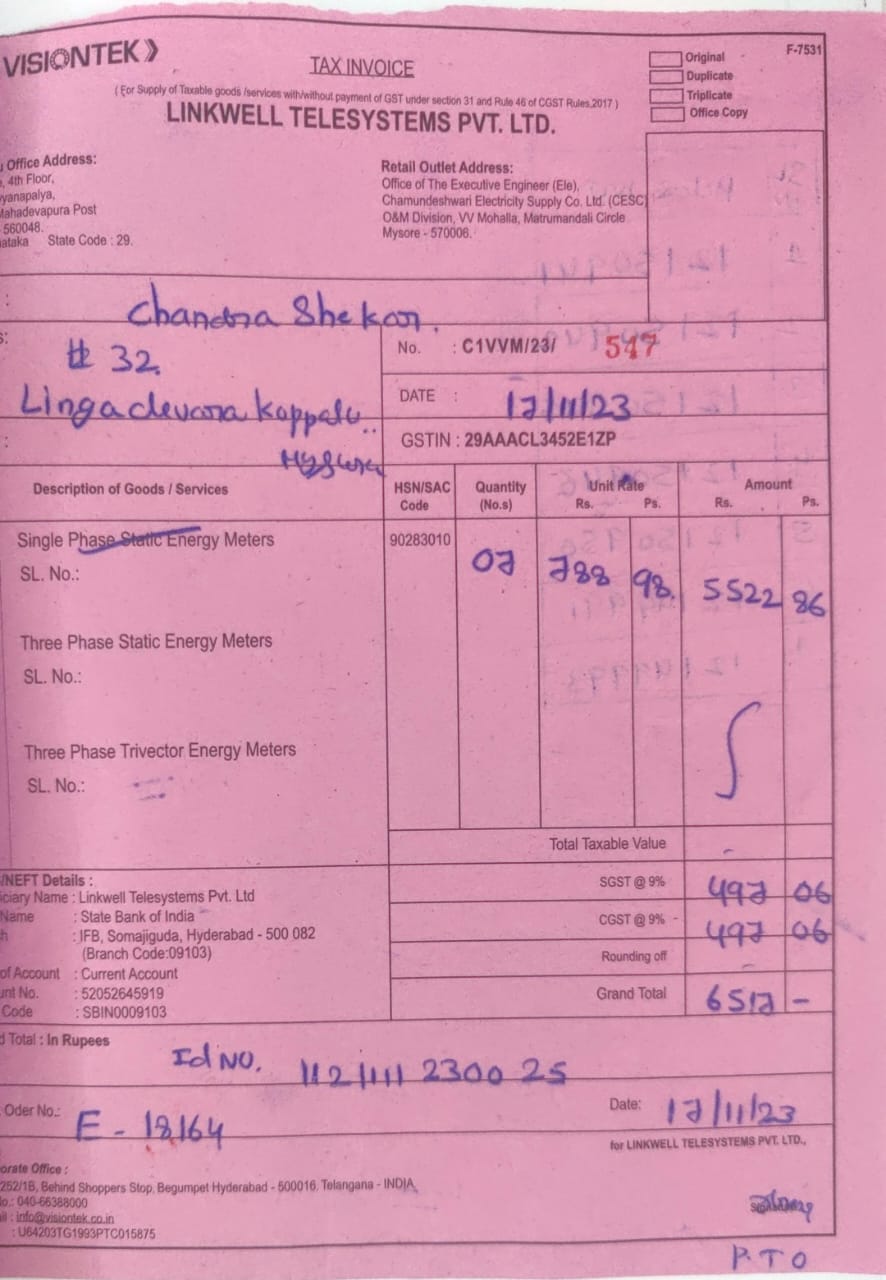 VISIONTEK
TAX INVOICE
Original
Duplicate
Triplicate
Office Copy
F-7531
( For Supply of Taxable goods /services with/without payment of GST under section 31 and Rule 46 of CGST Rules,2017 )
LINKWELL TELESYSTEMS PVT. LTD.
Office Address:
, 4th Floor,
yanapalya,
ahadevapura Post
560048.
ataka State Code : 29.
Retail Outlet Address:
Office of The Executive Engineer (Ele),
Chamundeshwari Electricity Supply Co. Ltd. (CESC)
O&M Division, VV Mohalla, Matrumandali Circle
Mysore - 570006.
Chandra Shekar.
# 32.
Lingadevara Koppalu..
No. : C1VVM/23/ 547
DATE : 17/11/23
GSTIN : 29AAACL3452E1ZP
Description of Goods / Services
HSN/SAC Code
Quantity (No.s)
Unit Rate Rs. Ps.
Amount Rs. Ps.
Single Phase Static Energy Meters 90283010 07 788 98. 5522 86
SL. No.:
Three Phase Static Energy Meters
SL. No.:
Three Phase Trivector Energy Meters
SL. No.:
Total Taxable Value -
/NEFT Details :
SGST @ 9% 497 06
ciary Name : Linkwell Telesystems Pvt. Ltd
Name : State Bank of India
CGST @ 9% - 497 06
h : IFB, Somajiguda, Hyderabad - 500 082
(Branch Code:09103)
Rounding off -
of Account : Current Account
unt No. : 52052645919
Grand Total 6517 -
Code : SBIN0009103
d Total : In Rupees
Id NO. 112/1111 2300 25
Oder No.: E - 18164
Date: 17/11/23
for LINKWELL TELESYSTEMS PVT. LTD.,
orate Office :
252/1B, Behind Shoppers Stop, Begumpet Hyderabad - 500016. Telangana - INDIA,
lo.: 040-66388000
il : info@visiontek.co.in
: U64203TG1993PTC015875
P.T O